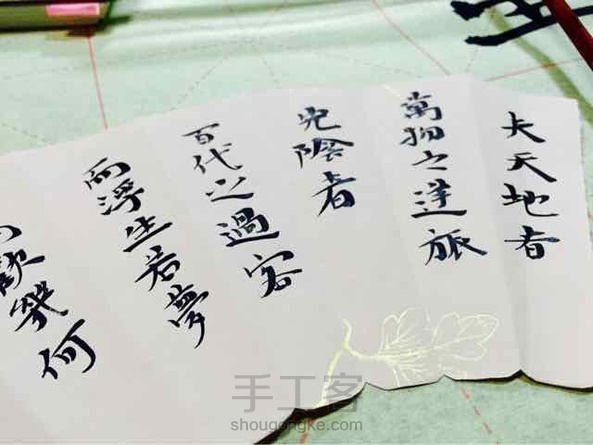 夫天地者
萬物之逆旅
光陰者
百代之過客
而浮生若夢
幾何
手工客
shougongke.com